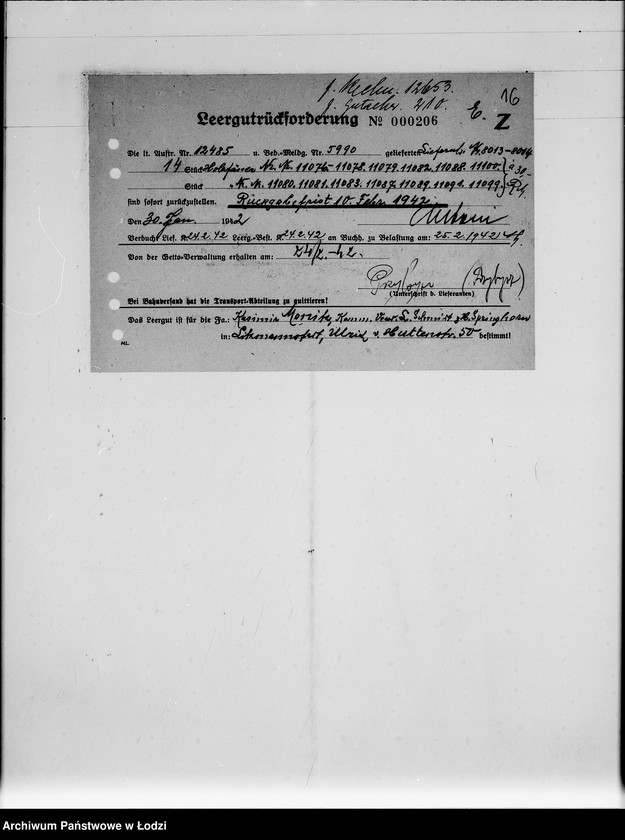 f. Rechn. 12653.
f. Gutschr. 210.
16
E. Z
Leergutrückforderung № 000206
Die lt. Auftr. Nr. 12485 u. Bed.-Meldg. Nr. 5990 gelieferten K. 8013-8014
14 Stück Holzfässer N. K. 11076. 11078. 11079. 11082. 11088. 11100. à 30.-
Stück N. K. 11080. 11081. 11083. 11087. 11089. 11091. 11099. Rℳ
sind sofort zurückzustellen. Rückgabefrist 10. Febr. 1942.
Den 30. Jan. 1942
Verbucht Lief. K. 24.2.42 Leerg.-Best. K. 24.2.42 an Buchh. zu Belastung am: 25.2.1942
Von der Getto-Verwaltung erhalten am: 24/2.-42.
(Unterschrift d. Lieferanten)
Bei Bahnversand hat die Transport-Abteilung zu quittieren!
Das Leergut ist für die Fa.: Kasimir Moritz, Komm. Verw. L. Schmidt & H. Springhorn
in: Litzmannstadt, Ulrich v. Huttenstr. 50 bestimmt!
ML.
Archiwum Państwowe w Łodzi